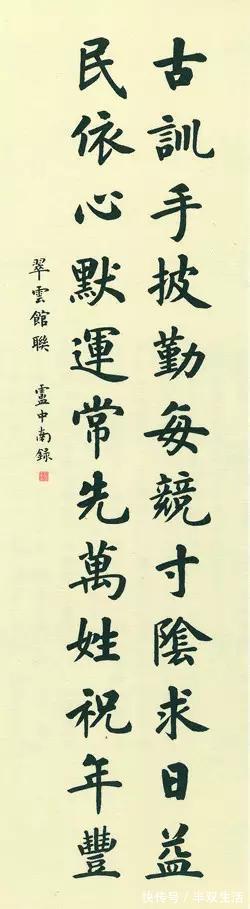 古訓手披勤每競寸陰求日益
民依心默運常先萬姓祝年豐
翠雲館聯 盧中南錄
快传号/半双生活